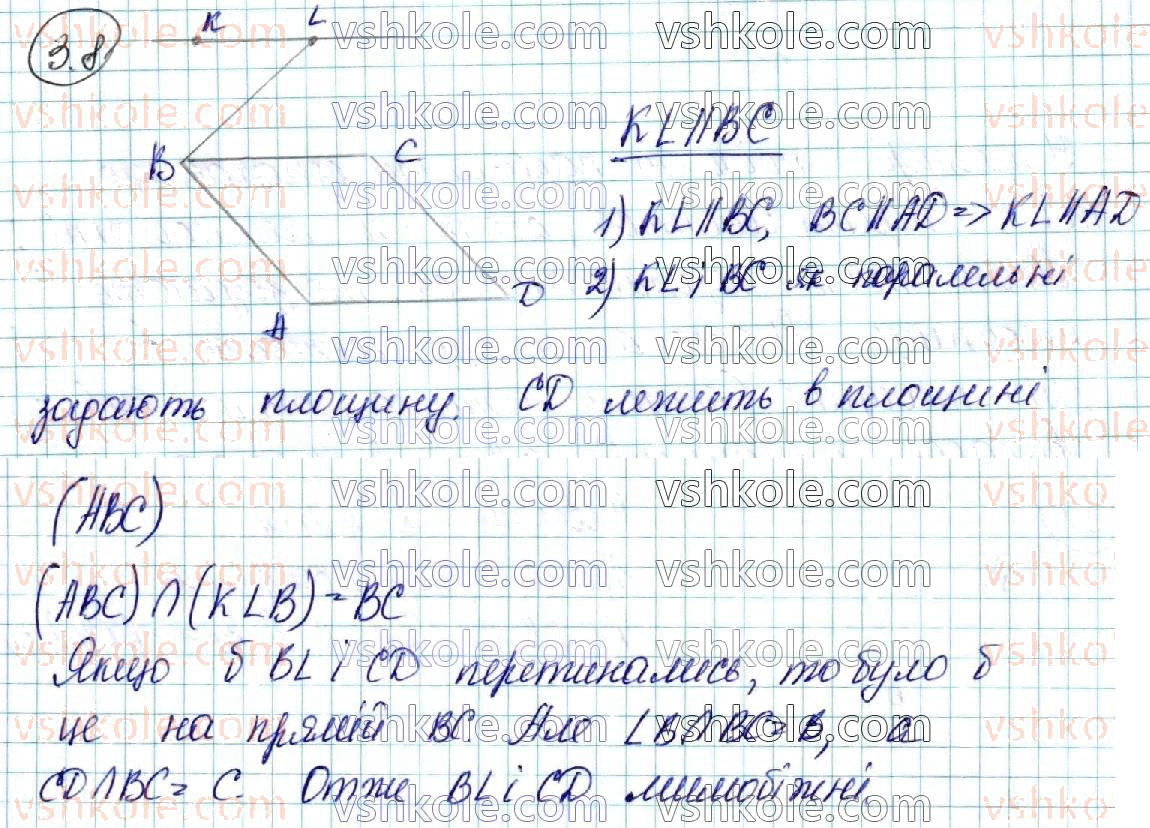 3.8
K L
B C
A D
KL||BC
1) KL||BC, BC||AD=> KL||AD
2) KL і BC як паралельні
задають площину. CD лежить в площині
(ABC)
(ABC)∩(KLB)=BC
Якщо б BL і CD перетинались, то було б
це на прямій BC. Але LB∩BC=B, а
CD∩BC= C. Отже BL і CD мимобіжні.
vshkole.com